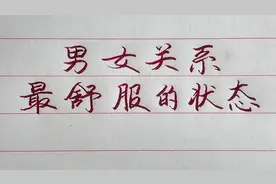 男女关系
最舒服的状态